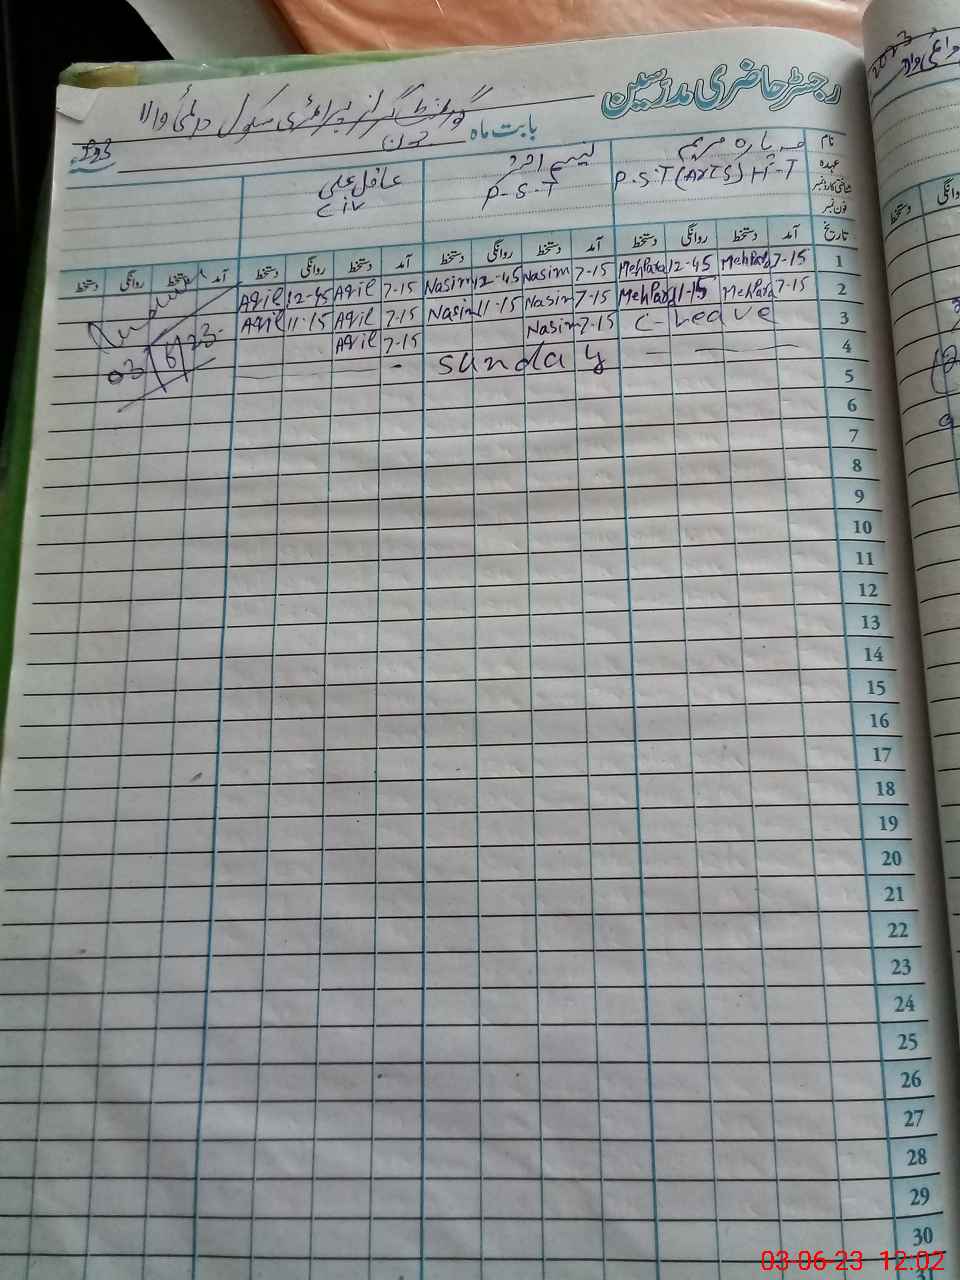 رجسٹر حاضری مدرسین
گورنمنٹ گرلز پرائمری سکول
بابت ماہ جون 2023
نام مہ پارہ مریم نسیم اختر عاقل علی
عہدہ P.S.T (Arts) H-T P-S-T C iv
شناختی کارڈ نمبر
فون نمبر
تاریخ آمد دستخط روانگی دستخط آمد دستخط روانگی دستخط آمد دستخط روانگی دستخط آمد دستخط روانگی دستخط
1 7-15 MehPara 12-45 MehPara 7-15 Nasim 12-45 Nasim 7-15 Aqil 12-45 Aqil
2 7-15 MehPara 11-15 MehPara 7-15 Nasim 11-15 Nasim 7-15 Aqil 11-15 Aqil
3 C-Leave 7-15 Nasim 7-15 Aqil
03/6/23
4 Sunday
5
6
7
8
9
10
11
12
13
14
15
16
17
18
19
20
21
22
23
24
25
26
27
28
29
30
31
03-06-23 12:02